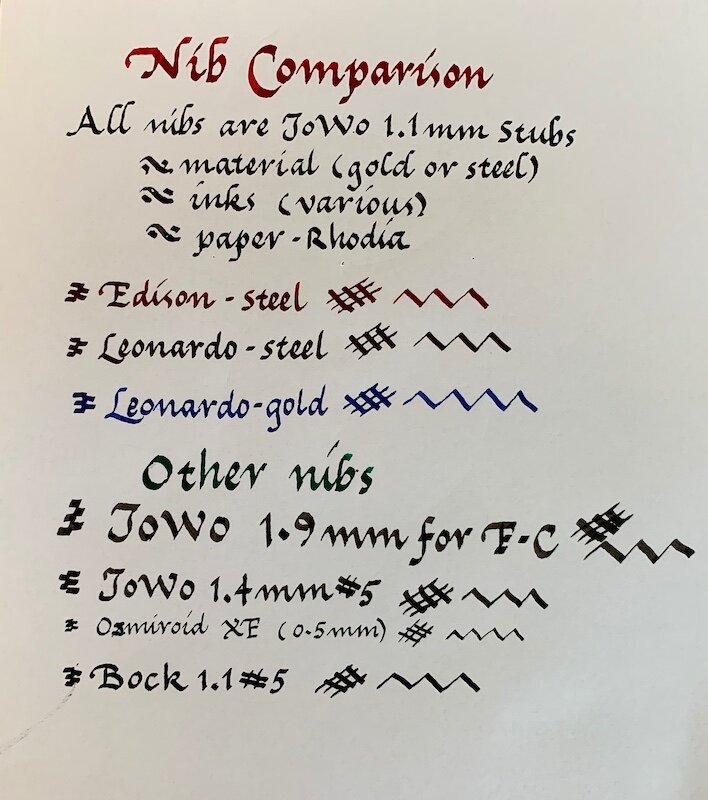 Nib Comparison
All nibs are JoWo 1.1mm Stubs
~ material (gold or steel)
~ inks (various)
~ paper - Rhodia
Edison - steel
Leonardo - steel
Leonardo-gold
Other nibs
JoWo 1.9mm for F-C
JoWo 1.4mm #5
Osmiroid XF (0.5mm)
Bock 1.1 #5